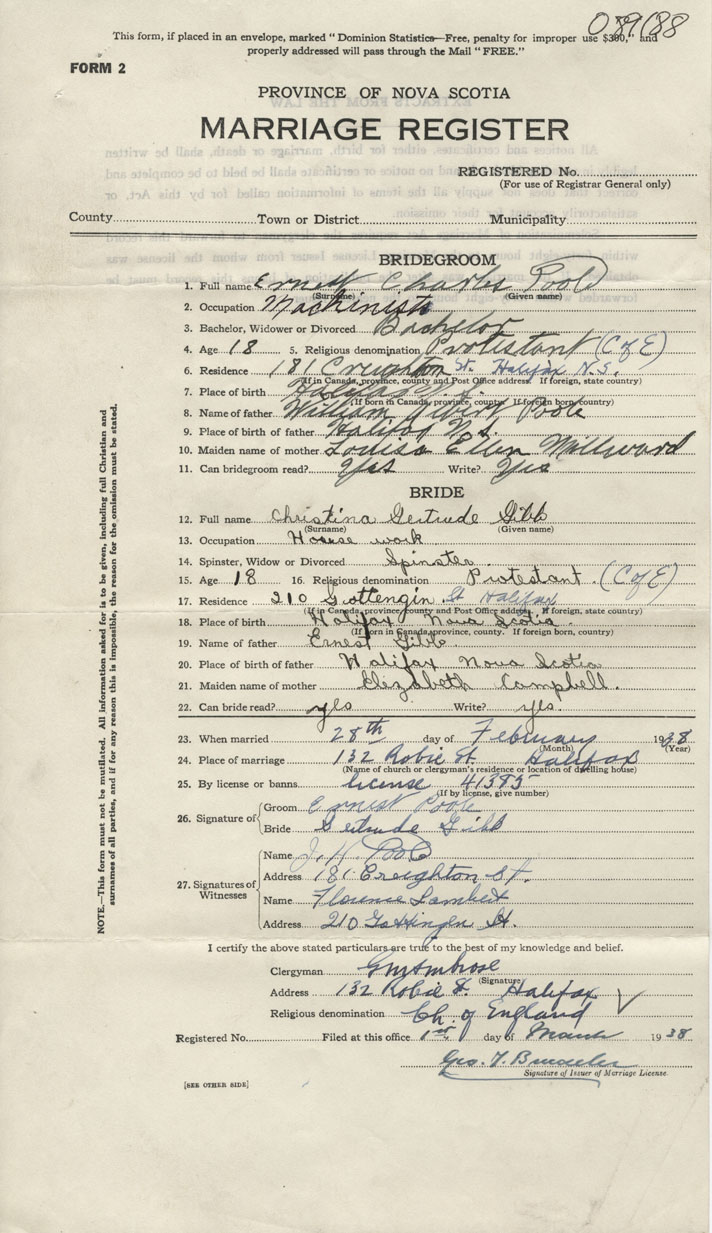 This form, if placed in an envelope, marked "Dominion Statistics—Free, penalty for improper use $300," and
properly addressed will pass through the Mail "FREE."
FORM 2
PROVINCE OF NOVA SCOTIA
MARRIAGE REGISTER
REGISTERED No.
(For use of Registrar General only)
County Town or District Municipality
BRIDEGROOM
1. Full name Ernest Charles Poole
(Surname) (Given name)
2. Occupation Machinist
3. Bachelor, Widower or Divorced Bachelor
4. Age 18 5. Religious denomination Protistant (C of E)
6. Residence 181 Creighton St. Halifax N.S.
(If in Canada, province, county and Post Office address. If foreign, state country)
7. Place of birth Halifax N.S.
(If born in Canada, province, county. If foreign born, country)
8. Name of father William Albert Poole
9. Place of father Halifax N.S.
10. Maiden name of mother Louisa Ellen Millward
11. Can bridegroom read? Yes Write? Yes
BRIDE
12. Full name Christina Gertrude Gibb
(Surname) (Given name)
13. Occupation House work
14. Spinster, Widow or Divorced Spinster
15. Age 18 16. Religious denomination Protestant. (C of E)
17. Residence 210 Gottengin St Halifax
(If in Canada, province, county and Post Office address. If foreign, state country)
18. Place of birth Halifax Nova Scotia.
(If born in Canada, province, county. If foreign born, country)
19. Name of father Ernest Gibb.
20. Place of birth of father Halifax Nova Scotia
21. Maiden name of mother Elizabeth Campbell.
22. Can bride read? yes Write? yes.
23. When married 28th day of February 1938
(Month) (Year)
24. Place of marriage 132 Robie St. Halifax
(Name of church or clergyman's residence or location of dwelling house)
25. By license or banns license 41385
(If by license, give number)
26. Signature of
Groom Ernest Poole
Bride Gertrude Gibb
27. Signatures of Witnesses
Name J. H. Poole
Address 181 Creighton St.
Name Florence Lambert
Address 210 Gottingen St.
I certify the above stated particulars are true to the best of my knowledge and belief.
Clergyman G M Ambrose
(Signature)
Address 132 Robie St. Halifax
Religious denomination Ch. of England
Registered No. Filed at this office 1st day of March 1938
Geo. T.
Signature of Issuer of Marriage License
[SEE OTHER SIDE]
NOTE.—This form must not be mutilated. All information asked for is to be given, including full Christian and
surnames of all parties, and if for any reason this is impossible, the reason for the omission must be stated.